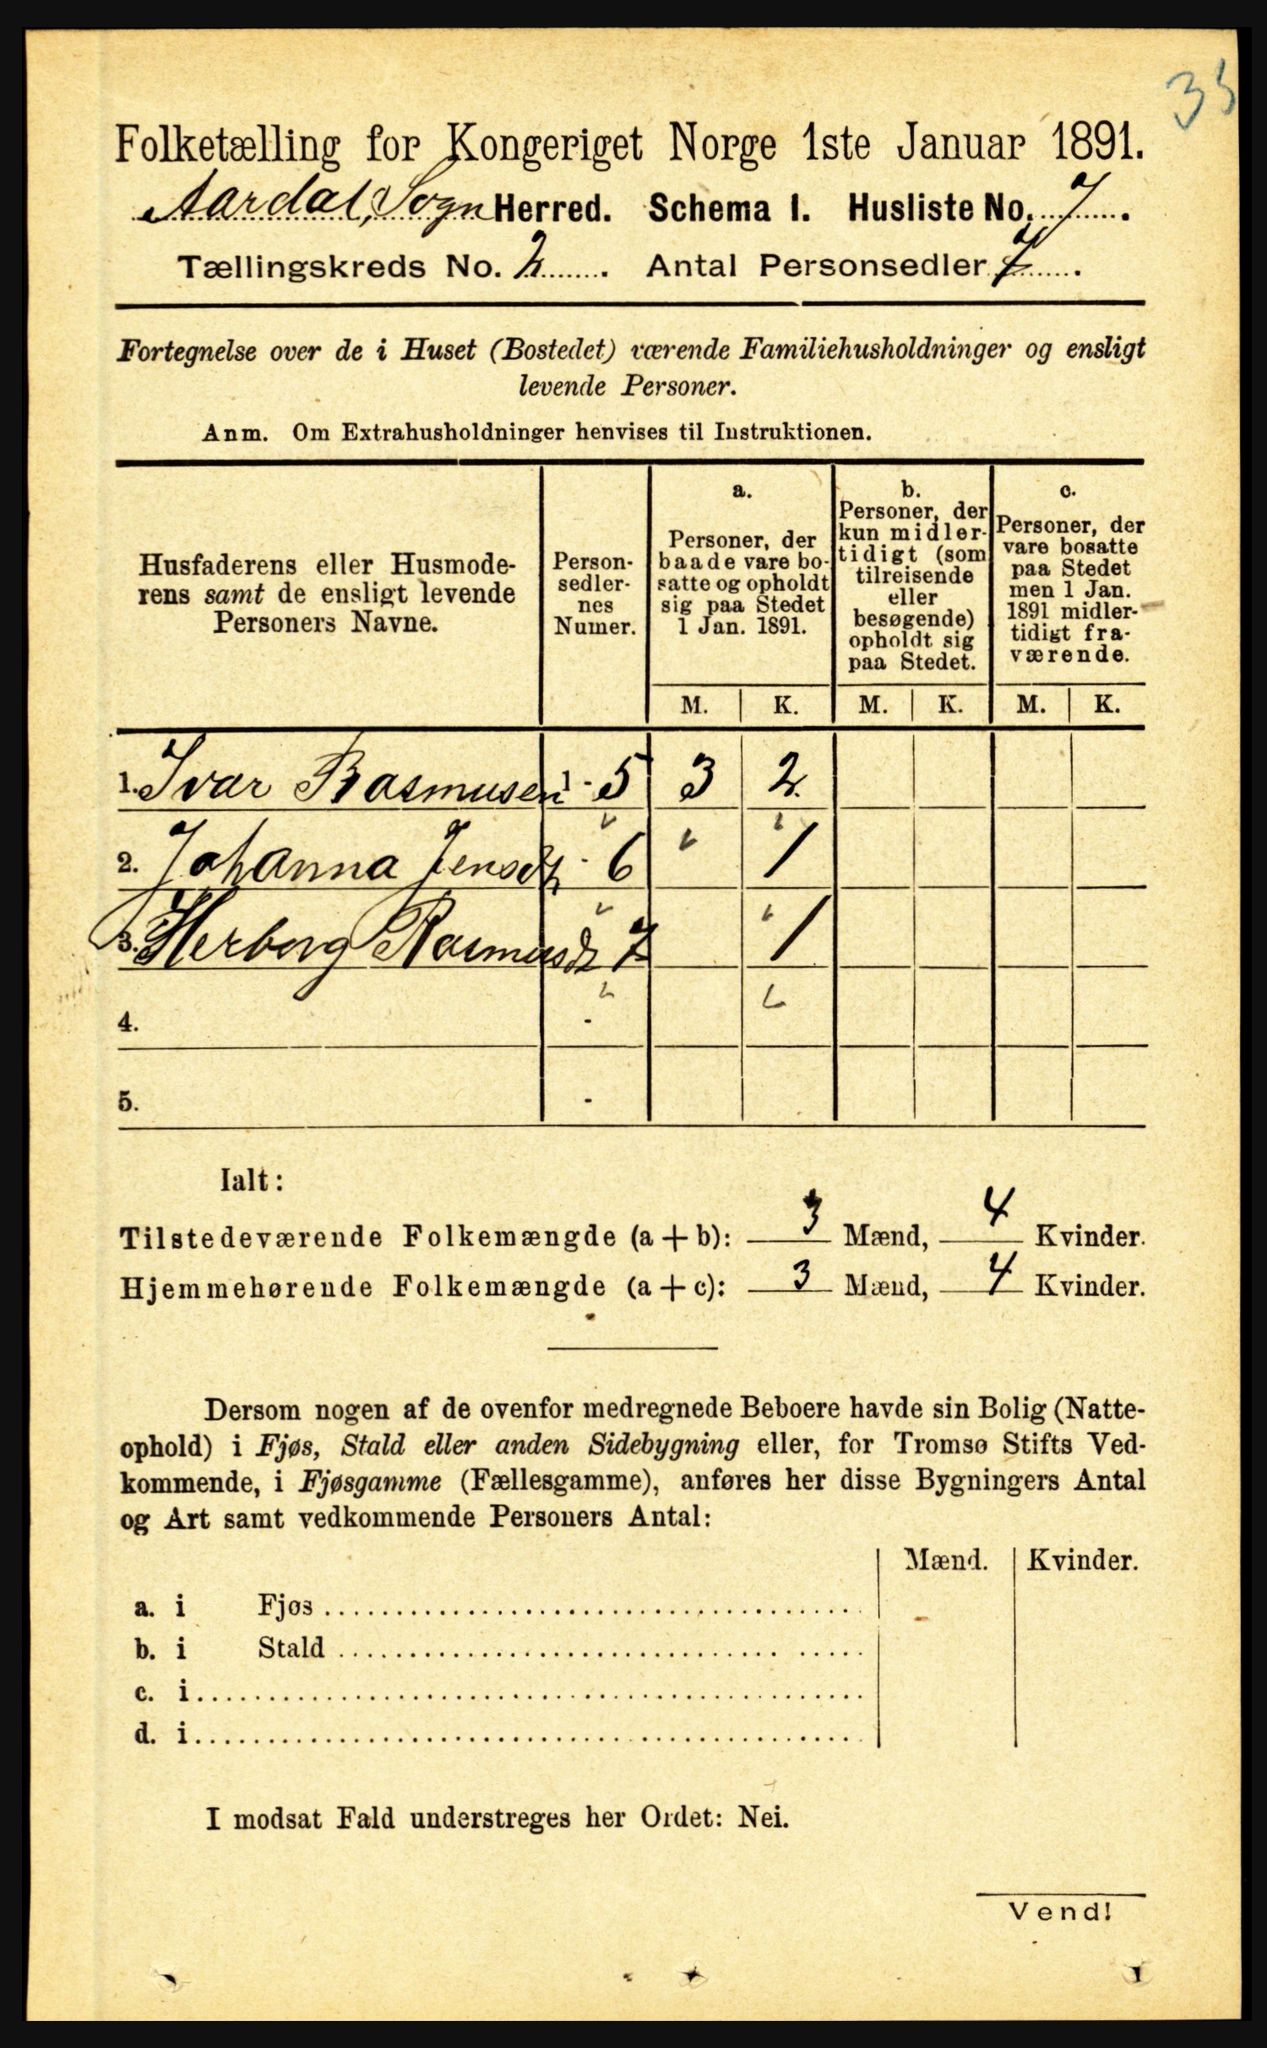 35
Folketælling for Kongeriget Norge 1ste Januar 1891.
Aardal, Sogn Herred. Schema I. Husliste No. 7.
Tællingskreds No. 2. Antal Personsedler 7.
Fortegnelse over de i Huset (Bostedet) værende Familiehusholdninger og ensligt
levende Personer.
Anm. Om Extrahusholdninger henvises til Instruktionen.
Husfaderens eller Husmode-
rens samt de ensligt levende
Personers Navne.
Person-
sedler-
nes
Numer.
a.
Personer, der
baade vare bo-
satte og opholdt
sig paa Stedet
1 Jan. 1891.
b.
Personer, der
kun midler-
tidigt (som
tilreisende
eller
besøgende)
opholdt sig
paa Stedet.
c.
Personer, der
vare bosatte
paa Stedet
men 1 Jan.
1891 midler-
tidigt fra-
værende.
M. K. M. K. M. K.
1. Ivar Rasmusen 1 - 5 3 2
2. Johanna Jensdt - 6 1
3. Herborg Rasmusdt 7 1
4. -
5. -
Ialt:
Tilstedeværende Folkemængde (a + b): 3 Mænd, 4 Kvinder.
Hjemmehørende Folkemængde (a + c): 3 Mænd, 4 Kvinder.
Dersom nogen af de ovenfor medregnede Beboere havde sin Bolig (Natte-
ophold) i Fjøs, Stald eller anden Sidebygning eller, for Tromsø Stifts Ved-
kommende, i Fjøsgamme (Fællesgamme), anføres her disse Bygningers Antal
og Art samt vedkommende Personers Antal:
Mænd. Kvinder.
a. i Fjøs
b. i Stald
c. i
d. i
I modsat Fald understreges her Ordet: Nei.
Vend!
1